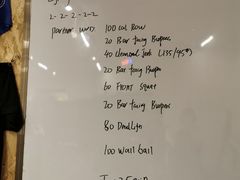 2-2-2-2-2-2
partner WOD: 100 cal Row
20 Bar Facing Burpees
40 clean and Jerk (135/95#)
20 Bar Facing Burpees
60 Front Squat
20 Bar Facing Burpees
80 Deadlifts
100 wall ball